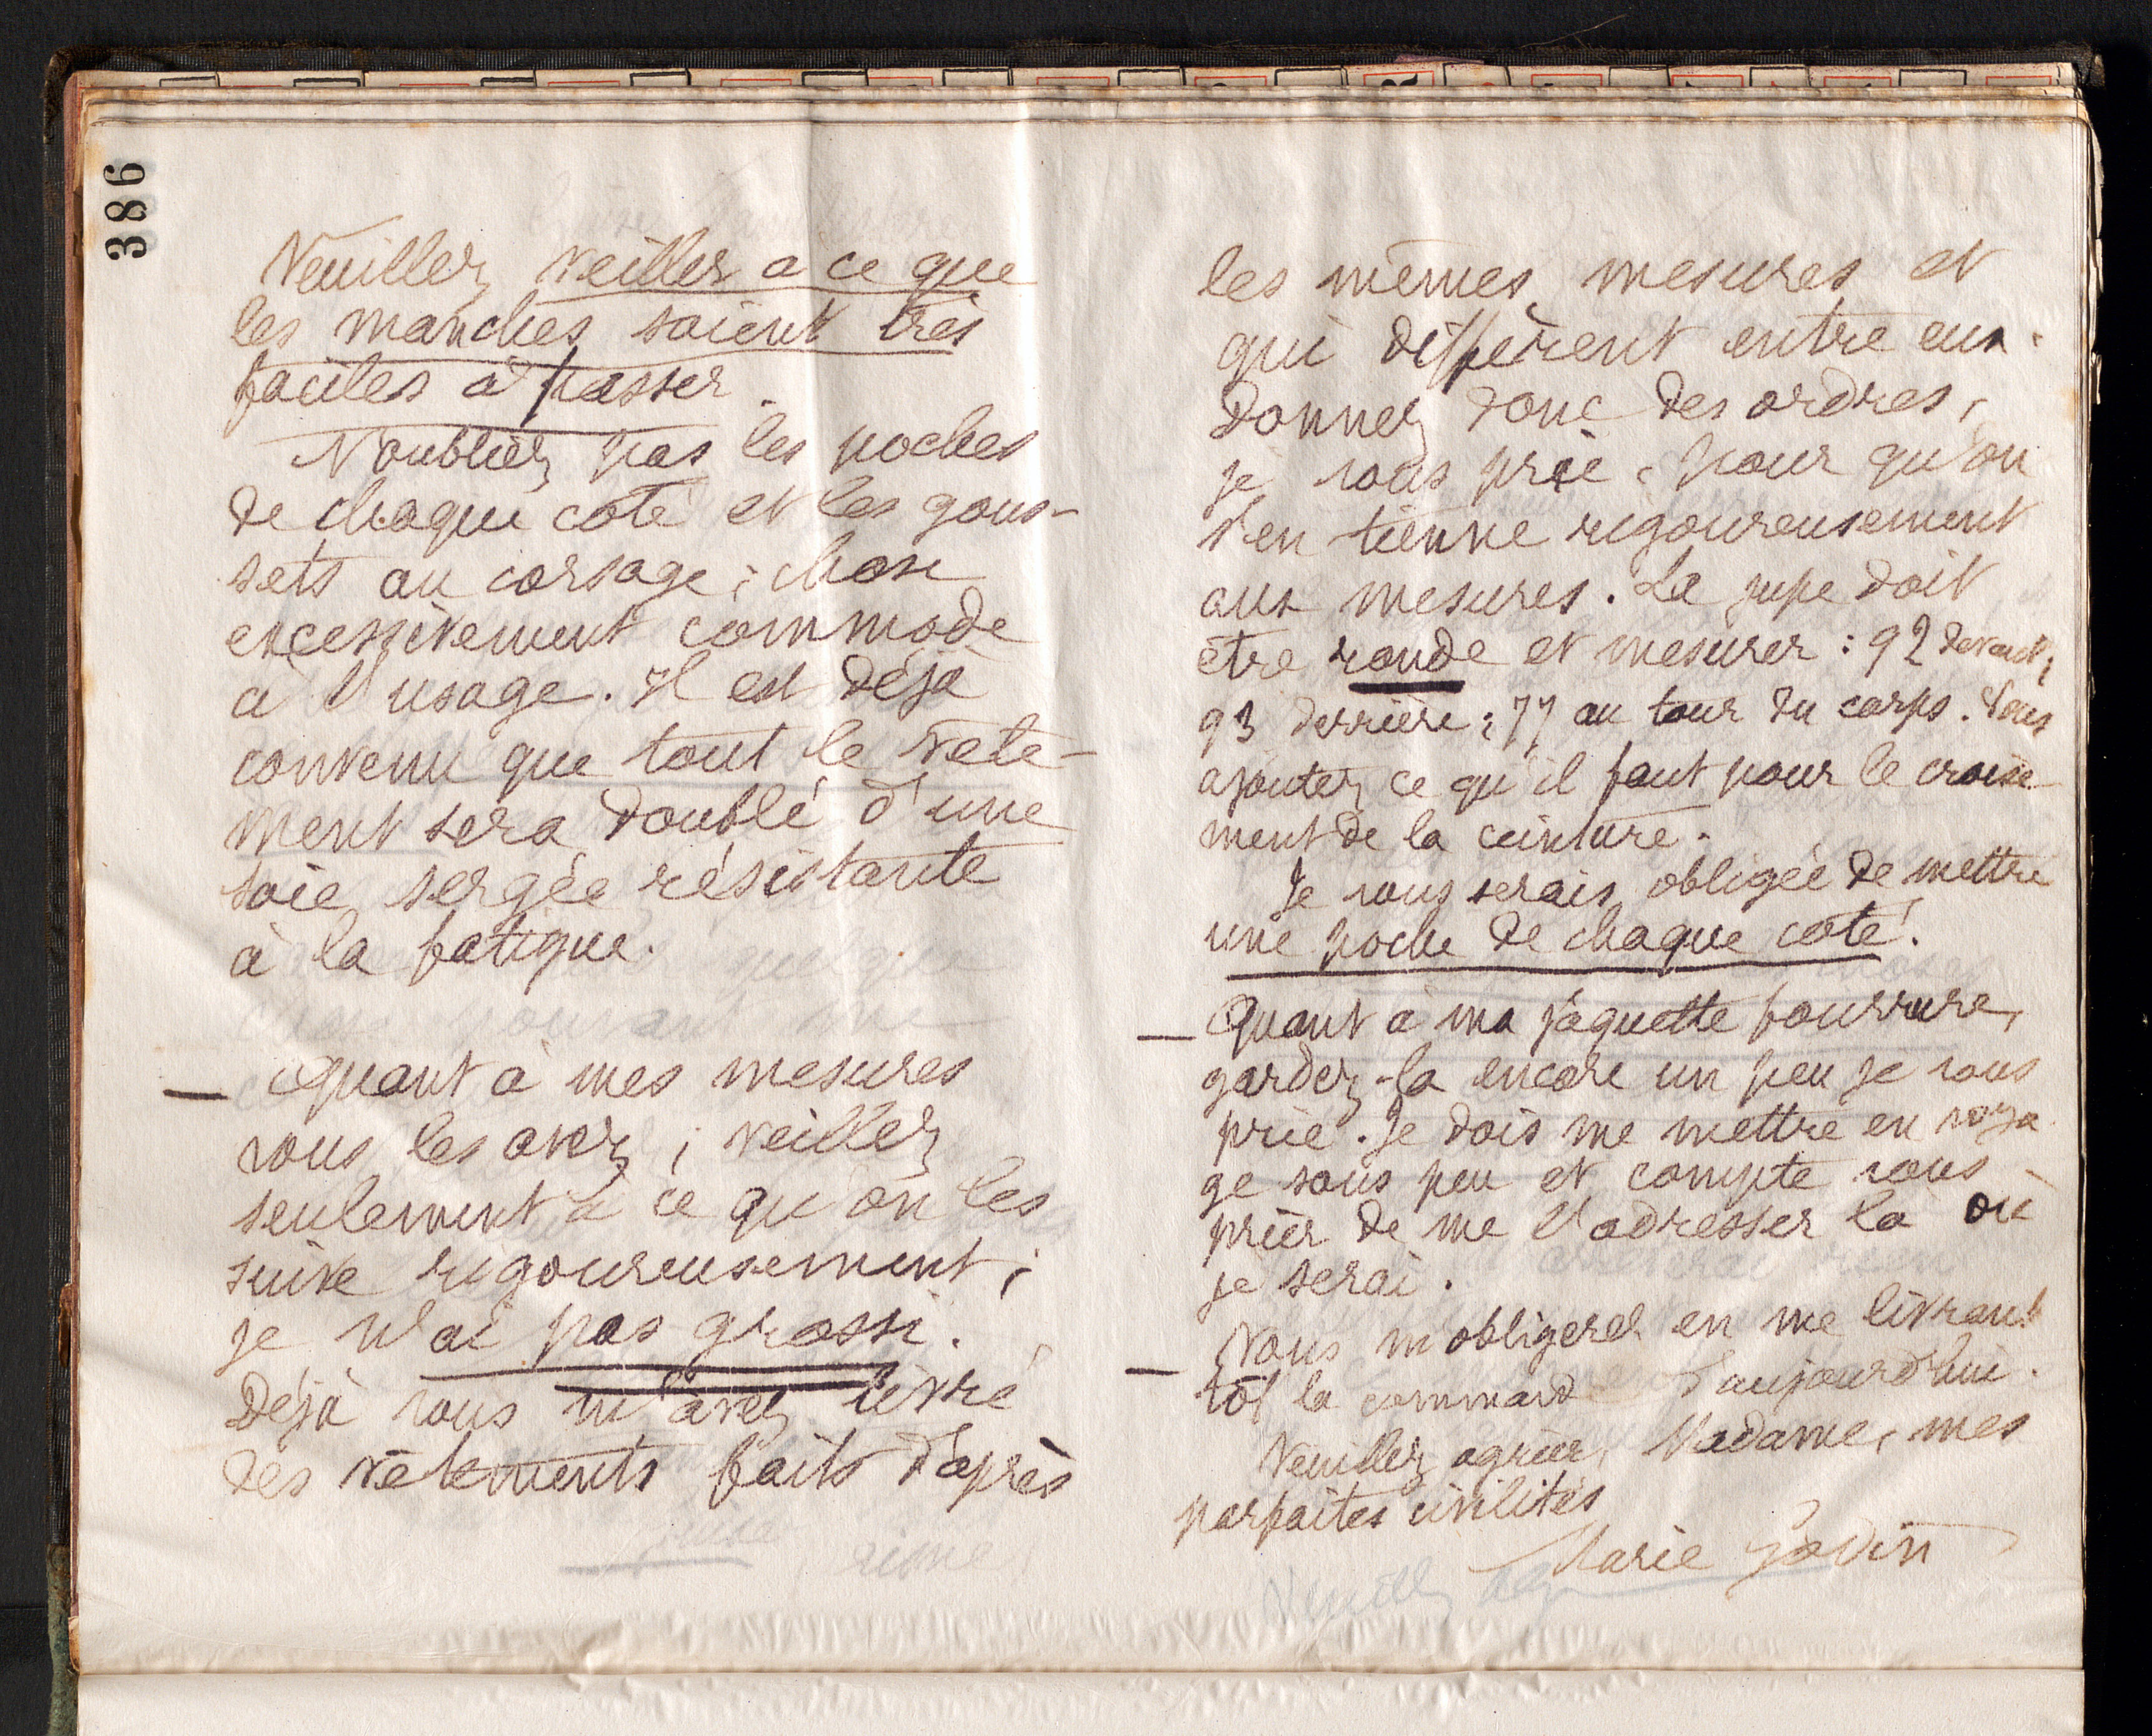 386
Veuillez veiller à ce que
les manches soient très
faciles à passer.
N'oubliez pas les poches
de chaque côté et les gous-
sets au corsage ; chose
excessivement commode
à l'usage. Il est déjà
convenu que tout le vête-
ment sera doublé d'une
soie sergée résistante
à la fatigue.
— Quant à mes mesures
vous les avez ; veillez
seulement à ce qu'on les
suive rigoureusement ;
je n'ai pas grossi.
Déjà vous m'avez livré
des vêtements faits d'après
les mêmes mesures et
qui diffèrent entre eux.
Donnez donc des ordres,
je vous prie, pour qu'on
s'en tienne rigoureusement
aux mesures. La jupe doit
être ronde et mesurer : 92 devant ;
93 derrière ; 77 au tour du corps. Vous
ajoutez ce qu'il faut pour le croise-
ment de la ceinture.
Je vous serais obligée de mettre
une poche de chaque côté.
— Quant à ma jaquette fourrure,
gardez-la encore un peu je vous
prie. Je dois me mettre en voya-
ge sous peu et compte vous
prier de me l'adresser là où
je serai.
— Vous m'obligerez en me livrant
tôt la command d'aujourd'hui.
Veuillez agréer, Madame, mes
parfaites civilités
Marie Godin